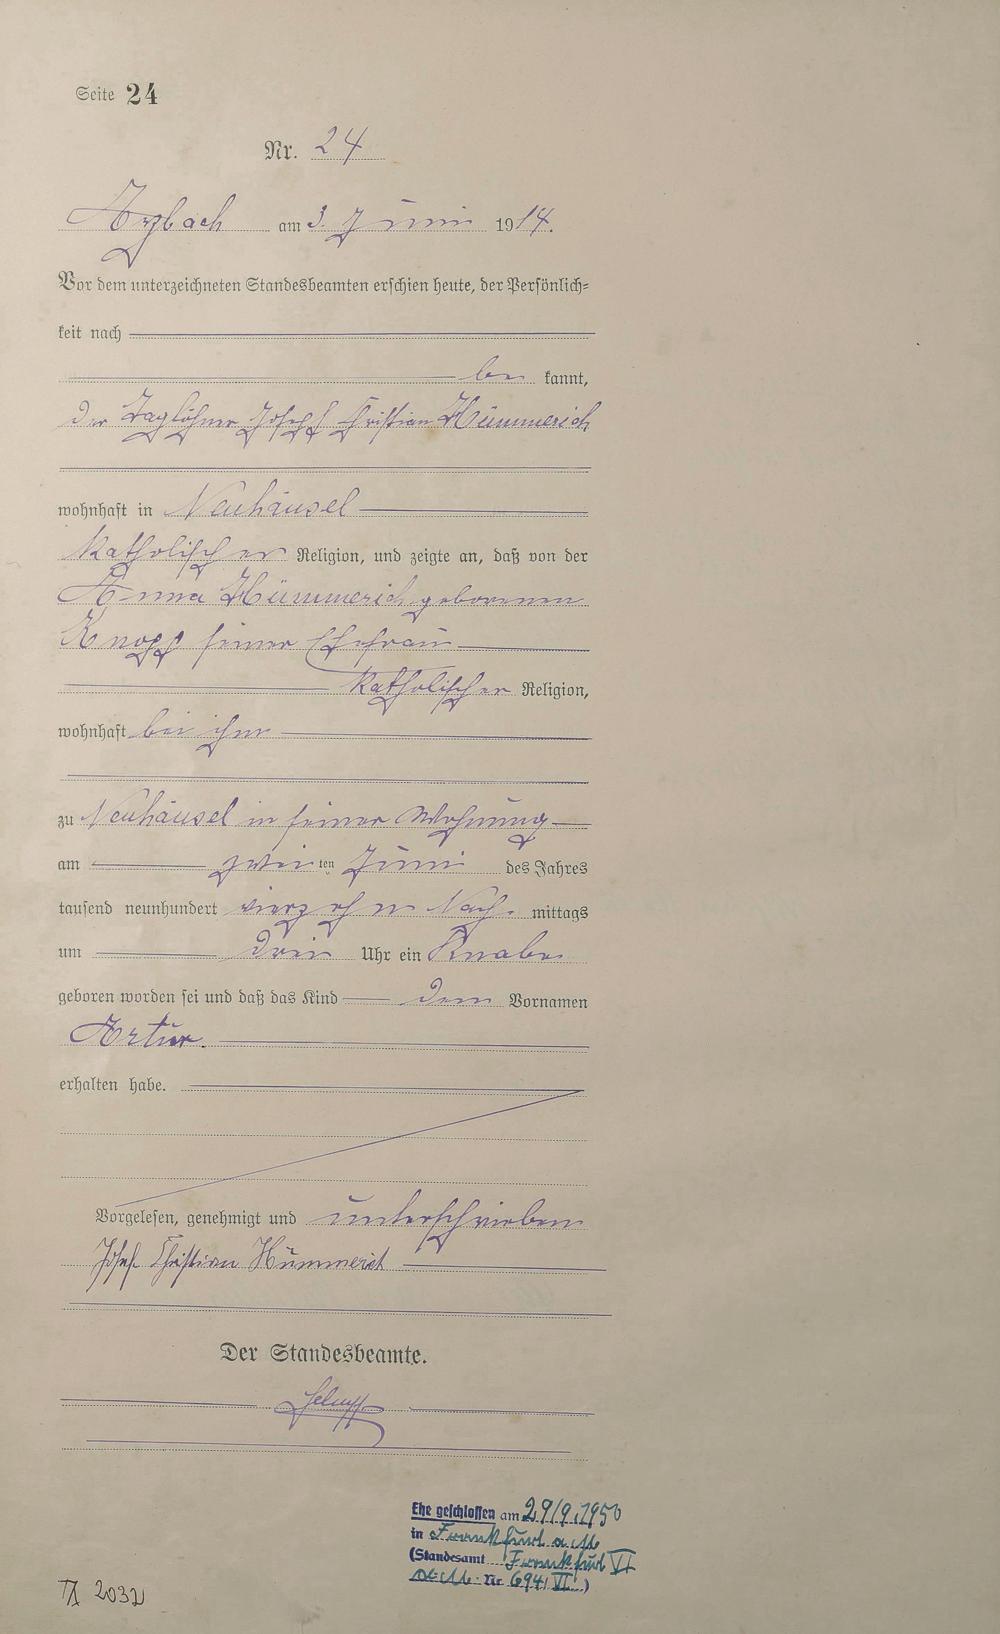 Seite 24
Nr. 24
Arzbach am 3. Juni 1914.
Vor dem unterzeichneten Standesbeamten erschien heute, der Persönlich=
keit nach
be kannt,
der Taglöhner Joseph Christian Hümmerich
wohnhaft in Neuhäusel
katholischer Religion, und zeigte an, daß von der
Anna Hümmerich geborenen
Knopp seiner Ehefrau
katholischer Religion,
wohnhaft bei ihm
zu Neuhäusel in seiner Wohnung
am zwei ten Juni des Jahres
tausend neunhundert vierzehn Nach mittags
um drei Uhr ein Knabe
geboren worden sei und daß das Kind den Vornamen
Artur.
erhalten habe.
Vorgelesen, genehmigt und unterschrieben
Josef Christian Hümmerich
Der Standesbeamte.
Ehe geschlossen am 29/9.1950
in Frankfurt a M
(Standesamt Frankfurt VI
a. M. Nr. 694/VI)
2032